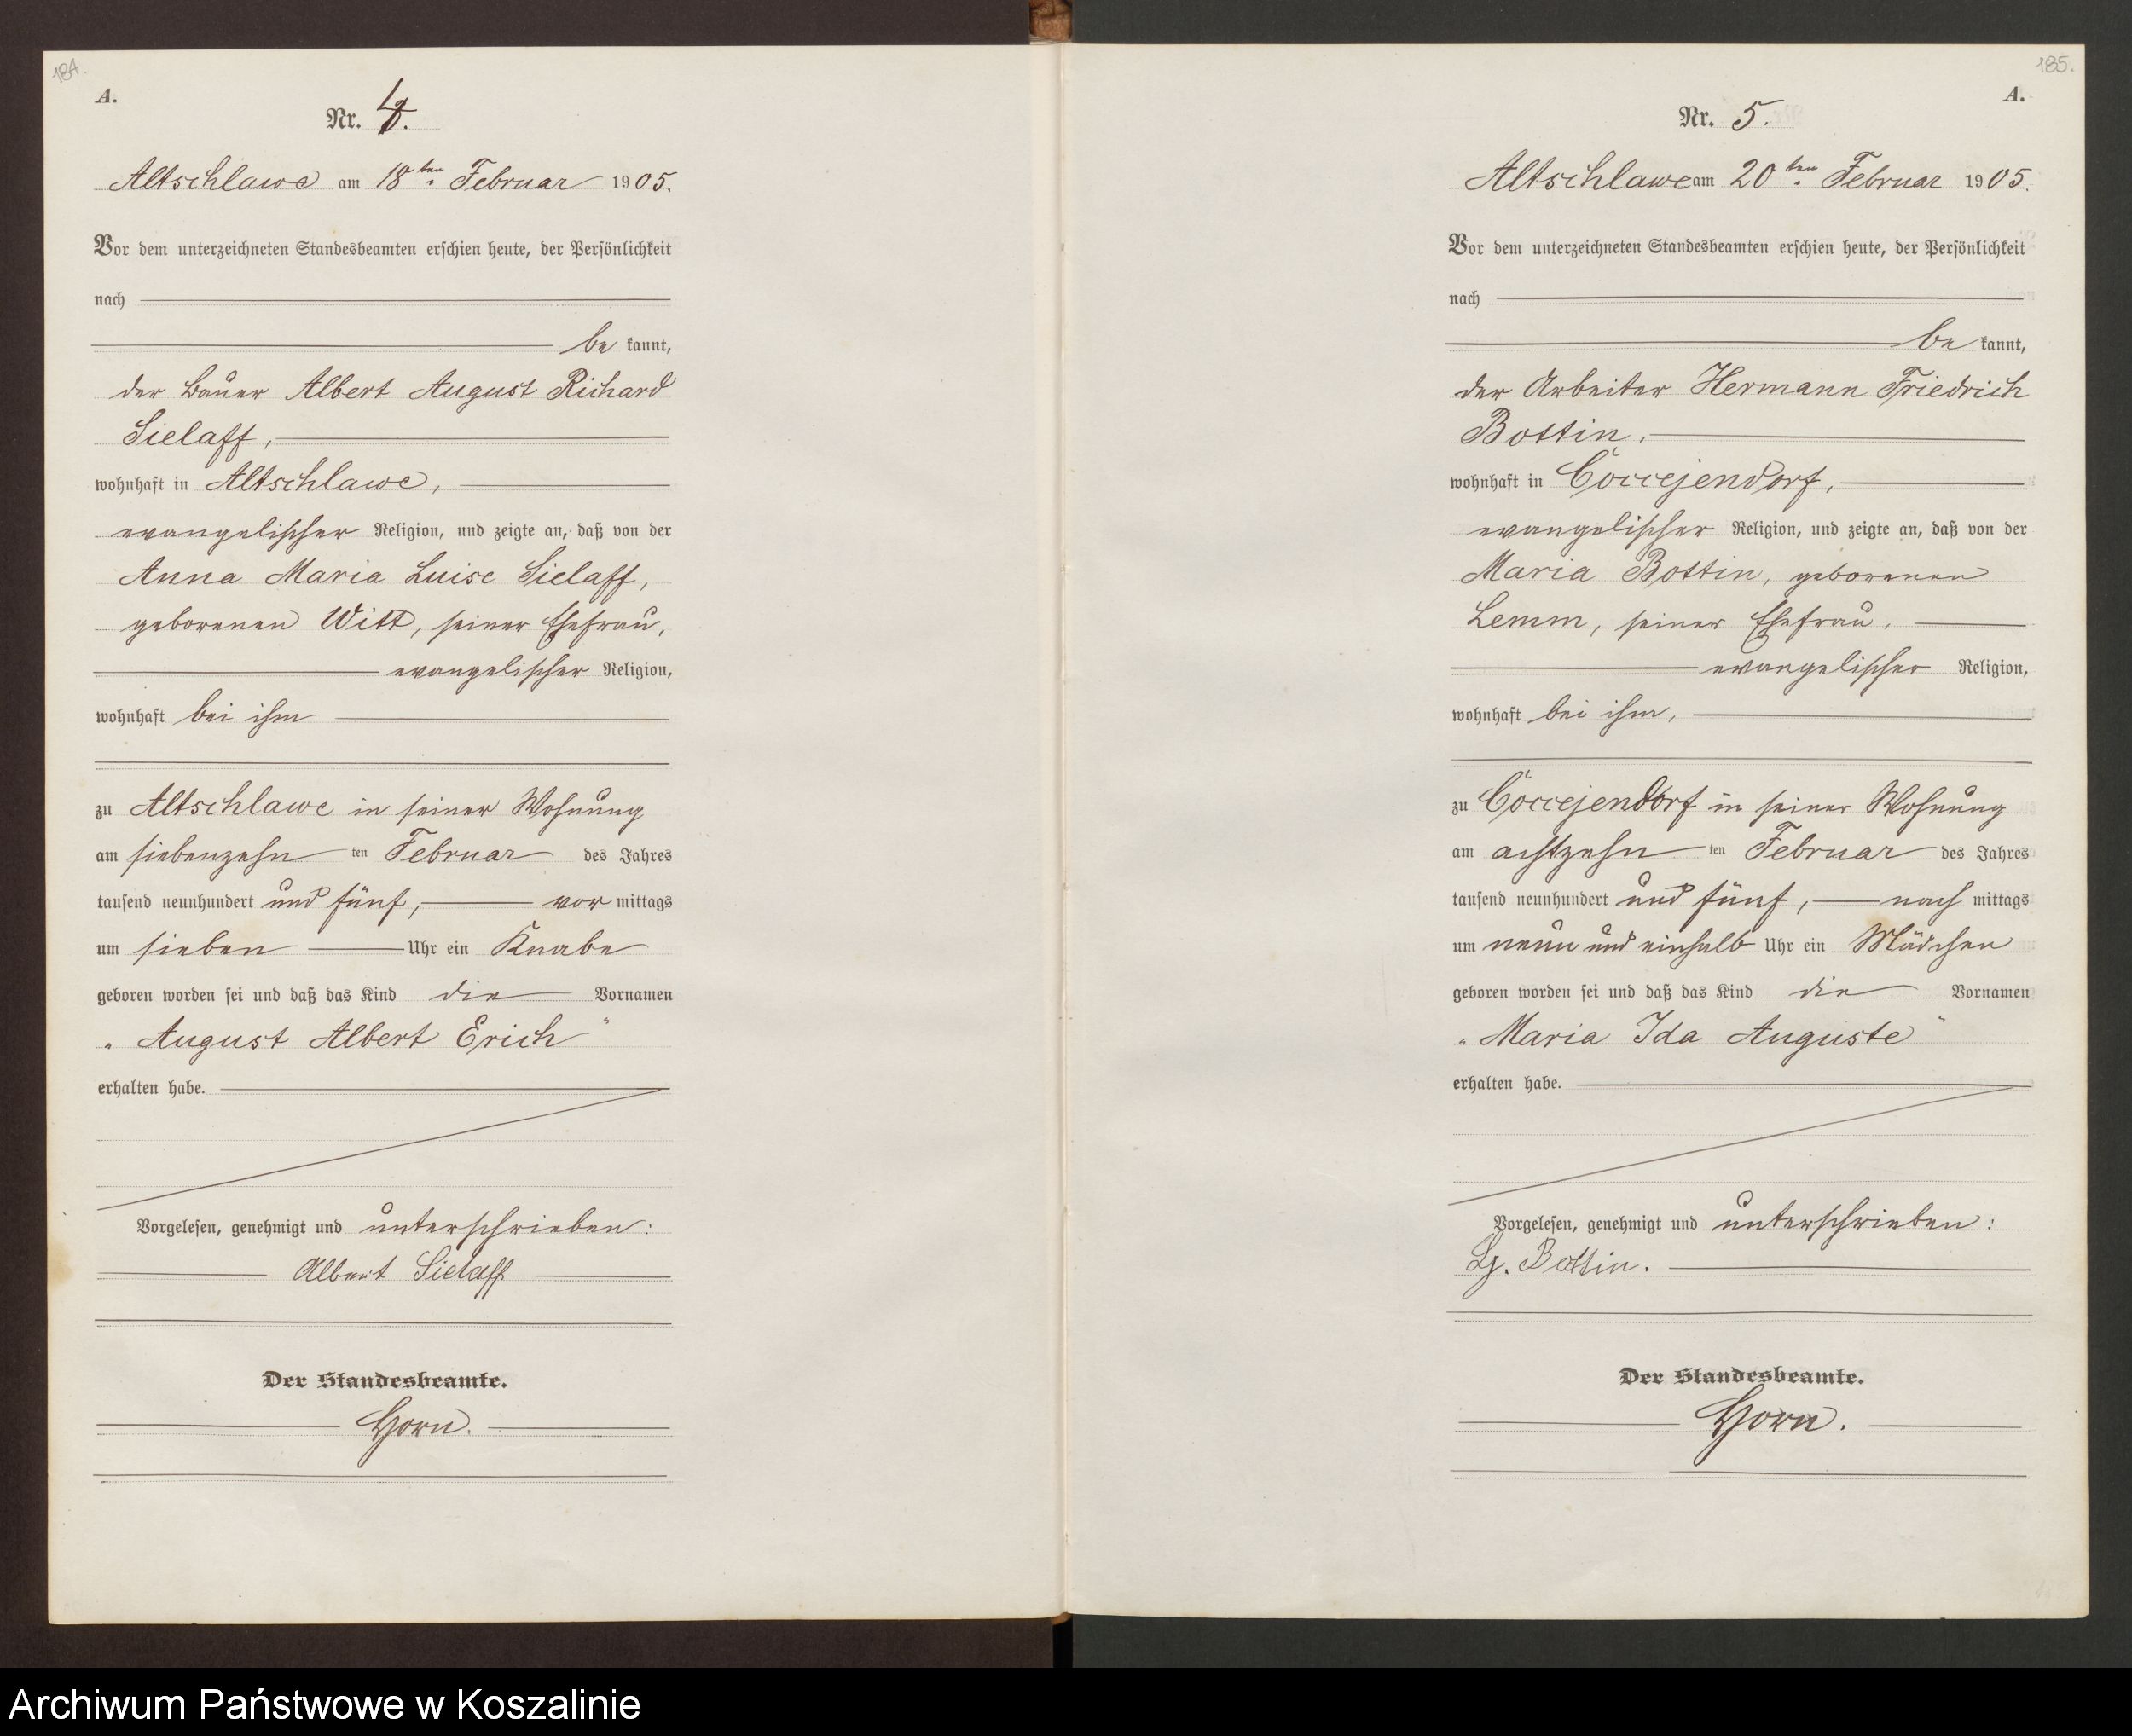 184.
A.
Nr. 4.
Altschlawe am 18ten Februar 1905.
Vor dem unterzeichneten Standesbeamten erschien heute, der Persönlichkeit
nach
be kannt,
der Bauer Albert August Richard
Sielaff,
wohnhaft in Altschlawe,
evangelischer Religion, und zeigte an, daß von der
Anna Maria Luise Sielaff,
geborenen Witt, seiner Ehefrau,
evangelischer Religion,
wohnhaft bei ihm
zu Altschlawe in seiner Wohnung
am siebenzehn ten Februar des Jahres
tausend neunhundert und fünf, vor mittags
um sieben Uhr ein Knabe
geboren worden sei und daß das Kind die Vornamen
„August Albert Erich"
erhalten habe.
Vorgelesen, genehmigt und unterschrieben:
Albert Sielaff
Der Standesbeamte.
Horn.
185.
A.
Nr. 5.
Altschlawe am 20ten Februar 1905.
Vor dem unterzeichneten Standesbeamten erschien heute, der Persönlichkeit
nach
be kannt,
der Arbeiter Hermann Friedrich
Bottin,
wohnhaft in Coccejendorf,
evangelischer Religion, und zeigte an, daß von der
Maria Bottin, geborenen
Lemm, seiner Ehefrau,
evangelischer Religion,
wohnhaft bei ihm,
zu Coccejendorf in seiner Wohnung
am achtzehn ten Februar des Jahres
tausend neunhundert und fünf, nach mittags
um neun und einhalb Uhr ein Mädchen
geboren worden sei und daß das Kind die Vornamen
„Maria Ida Auguste"
erhalten habe.
Vorgelesen, genehmigt und unterschrieben:
Bottin.
Der Standesbeamte.
Horn.
Archiwum Państwowe w Koszalinie